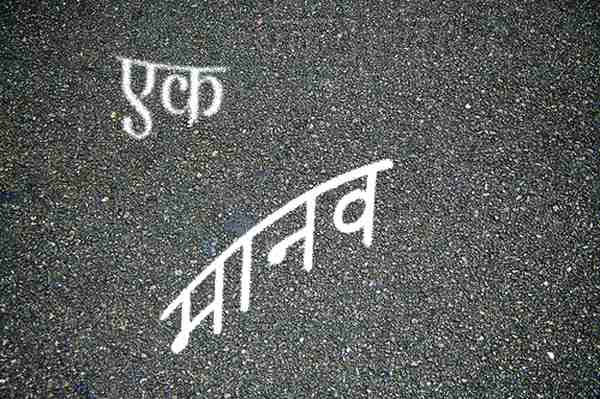 एक
मानव